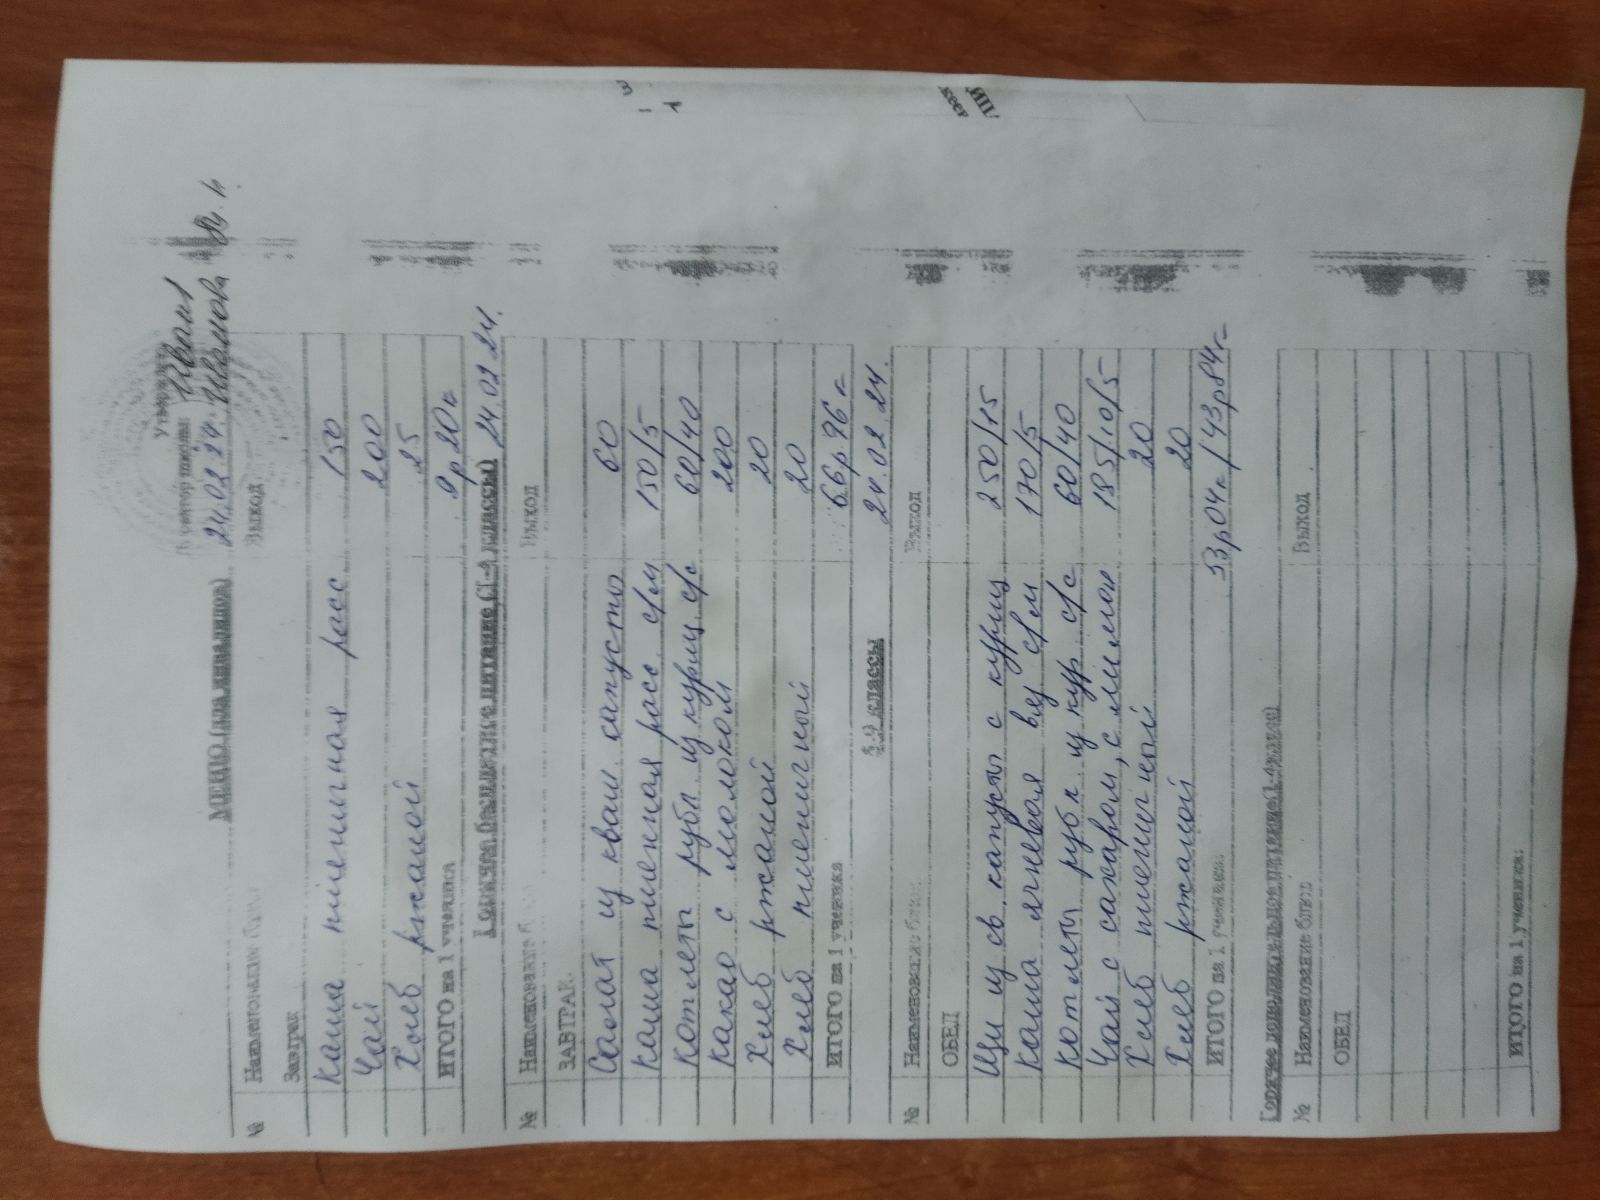 Утверждаю
Директор школы
24.02.24. Иванова
МЕНЮ (для инвалидов)
№ Наименование блюд Выход
Завтрак
Каша пшеничная расс 150
Чай 200
Хлеб ржаной 25
ИТОГО на 1 ученика 9р20к
Горячее бесплатное питание (1-4 классы) 24.02.24.
№ Наименование блюд Выход
ЗАВТРАК
Салат из кваш капусты 60
Каша пшенная расс с/м 150/5
Котлеты рубл из куриц с/с 60/40
Какао с молоком 200
Хлеб ржаной 20
Хлеб пшеничный 20
ИТОГО на 1 ученика 66р96к
24.02.24.
5-9 классы
№ Наименование блюд Выход
ОБЕД
Щи из св капусты с куриц 250/15
Каша ячневая вяз с/м 170/5
Котлеты рубл из кур с/с 60/40
Чай с сахаром, с лимон 185/10/5
Хлеб пшеничный 20
Хлеб ржаной 20
ИТОГО на 1 ученика: 53р04к/43р84к
Горячее дополнительное питание (1-4класс)
№ Наименование блюд Выход
ОБЕД
ИТОГО на 1 ученика: